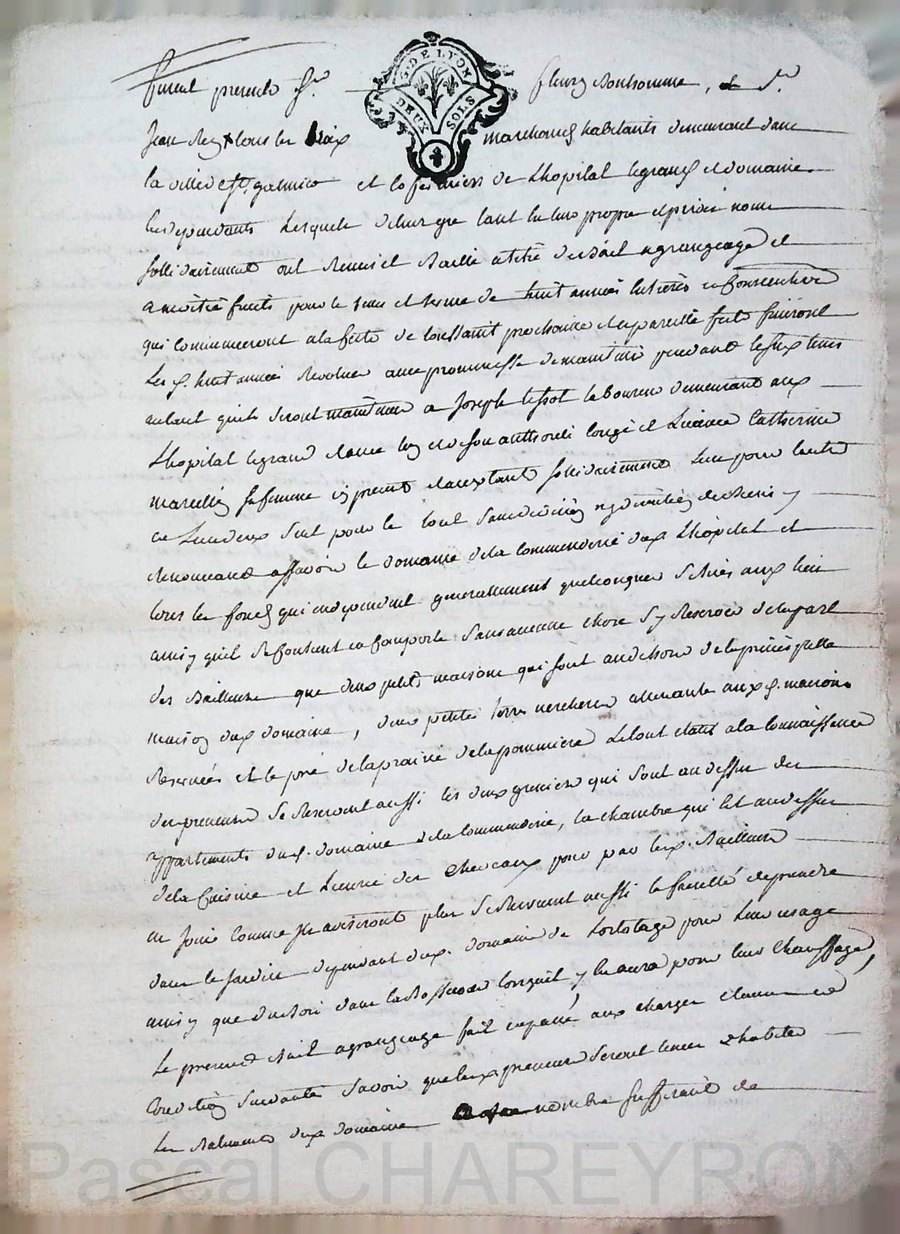 furent presents Sr. fleury Bonhomme, et Sr.
G. DE LYON
DEUX SOLS
Jean Rey tous les deux marchands habitants demeurant dans
la ville de St. galmier et cofermiers de Lhopital legrand et domaine
en dependants Lesquels de leur gre tant en leur propre et privé nom
sollidairement ont Remis et Baillé a titre de Bail agrangeage et
a moitié fruits pour le tems et terme de huit années entieres et consecutives
qui commenceront a la fete de toussaint prochaine et a pareille fete finiront
Les d. huit années Revolues avec promesse de maintenir pendant le susd tems
autant quils seront maintenus a Joseph tissot laboureur demeurant aux
Lhopital legrand et avec luy et de son authorité congé et Licence Catherine
marcellin sa femme cy presents et acceptant sollidairement Lun pour lautre
un Lun deux seul pour le tout sans division ny discution de Biens y
Renonceant assavoir le domaine de la commanderie dud. Lhopital et
tous les fonds qui en dependent generallement quelconques scitués aud. lieu
ainsy quil se contient et comporte sans aucune chose sy Reserver de la part
des Bailleurs que deux petites maisons qui sont au dessous de la principalle
maison dud. domaine, deux petites terres vercheres attenante aux d. maisons
Reservées et le pré de la prairie de la pommiere Le tout etant a la connaissance
des preneurs se Reservent aussi les deux greniers qui sont au dessus des
appartements dud. domaine de la Commanderie, la chambre qui est au dessus
de la Cuisine et Lecurie des chevaux pour par lesd. Bailleurs
en jouir comme ils aviseront plus se Reservent aussi la faculté de prendre
dans le Jardin dependant dud. domaine de Lortolage pour leur usage
ainsy que du Bois dans la Bassecour lorsquil y en aura pour leur chauffage,
Le present Bail agrangeage fait en passé aux charges clauses et
Conditions suivantes savoir que lesd. preneurs seront tenus d'habiter
Les Batiments dud. domaine nombre suffisant de
Pascal CHAREYRON